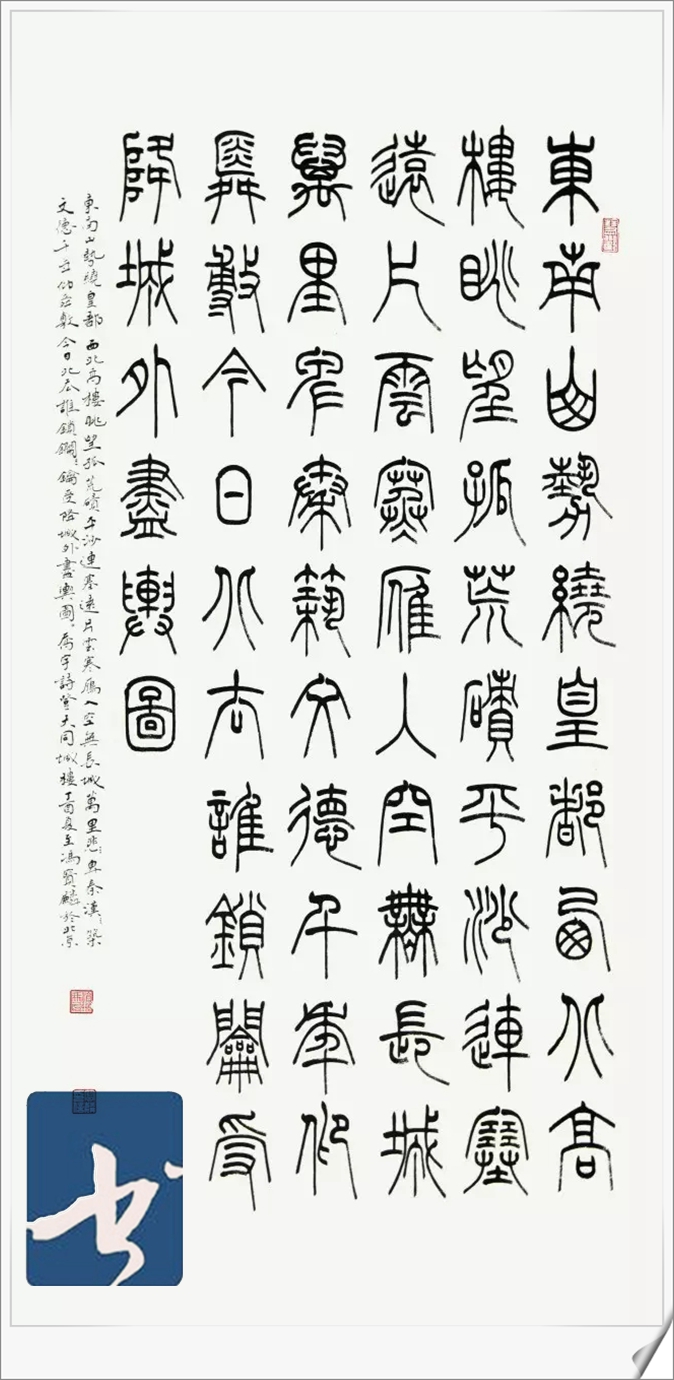 東南山勢繞皇都西北高
樓眺望孤荒磧平沙連塞
遠片雲寒雁入空無長城
萬里卑秦築文德千年仰
舜敷今日北誰鎖鑰受
降城外盡輿圖
東南山勢繞皇都西北高樓眺望孤荒磧平沙連塞遠片雲寒鴈入空無長城萬里悲卑秦漢築
文德千年仰敷今日北誰鎖鑰受降城外盡輿圖詩登大同城樓丁酉夏至馮寶麟於北京
书